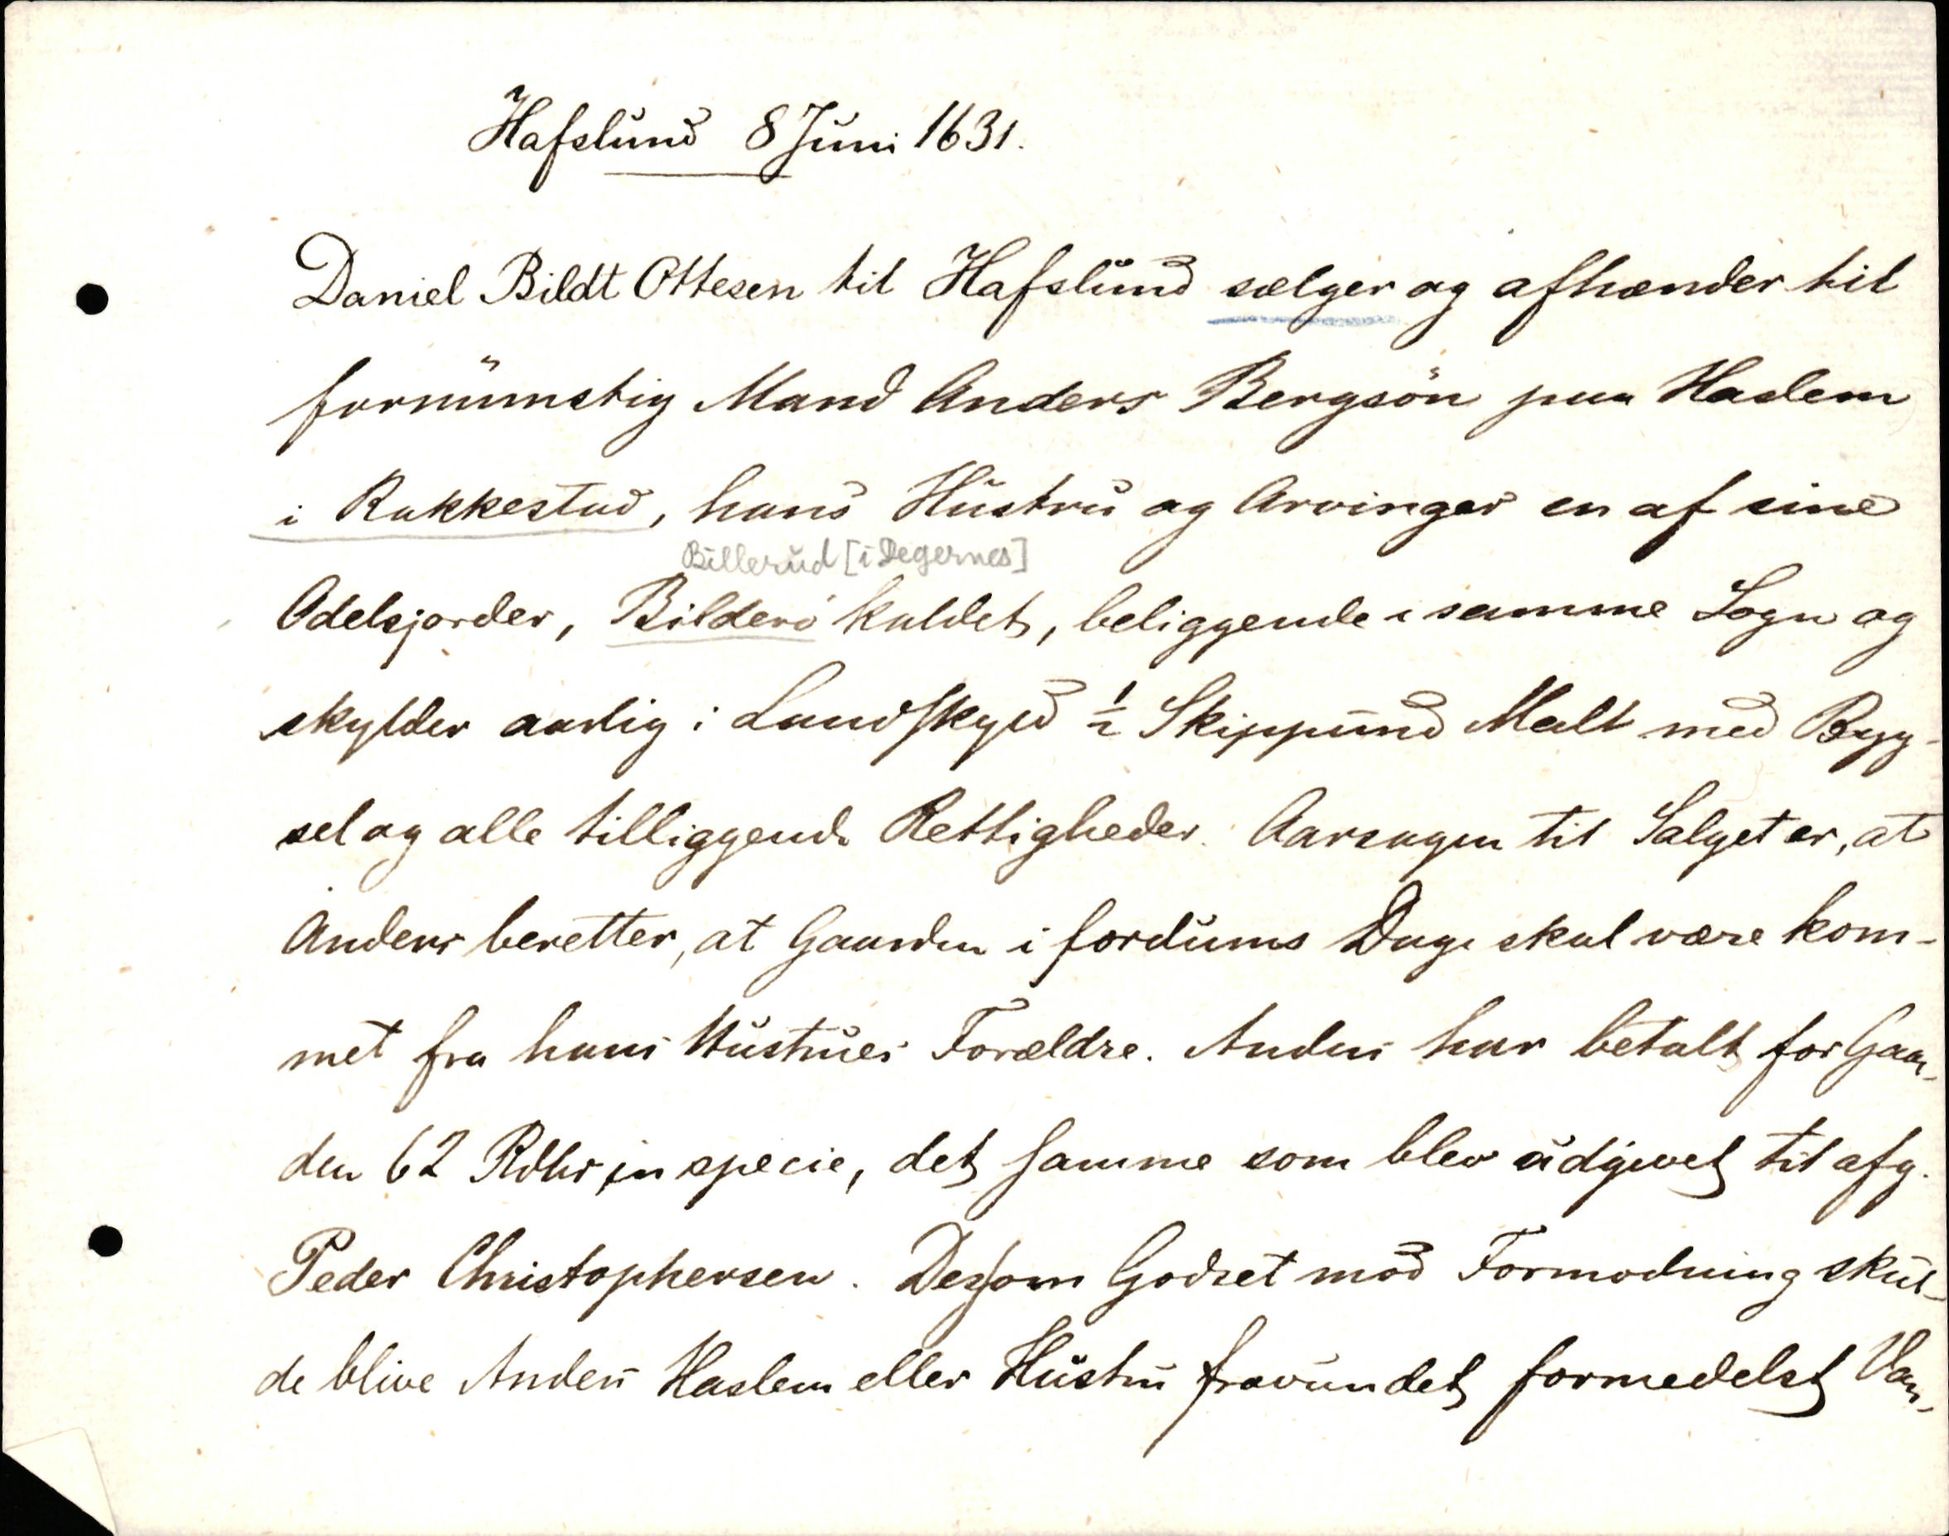 Hafslund 8 Juni 1631.
Daniel Bildt Ottesen til Hafslund sælger og afhænder til
fornümstig Mand Anders Bergsön paa Haslem
i Rakkestad, hans Hustru og Arvinger en af sine
Billerud [i Degernes]
Odelsjorder, Bilderö kaldet, beliggende i samme Sogn og
skylder aarlig i Landskyld ½ Skippund Malt med Byg-
sel og alle tilliggende Rettigheder. Aarsagen til Salget er, at
Anders beretter, at Gaarden i fordums Dage skal være kom-
met fra hans Hustrues Forældre. Anders har betalt for Gaar-
den 62 Rdlr in specie, det samme som blev udgivet til afg.
Peder Christophersen. Dersom Godset mod Formodning skul-
de blive Anders Haslem eller Hustru fravundet formedelst Van-